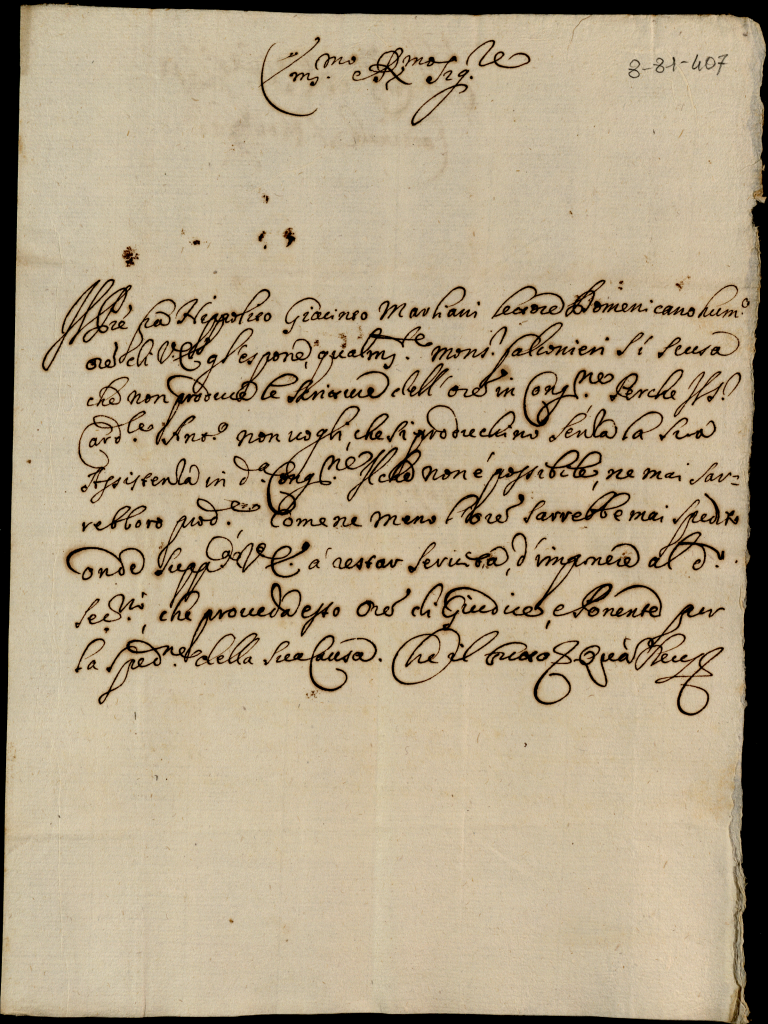 Em.mo e R.mo Sig.re
8-81-407
Il Pre fra Hippolito Giacinto Marliani lettore Domenicano hum.o
ore di V. E. gl'espone, qualm.te mons.r falconieri si scusa
che non produce le scritture dell'ore in Cong.ne Perche Il S.r
Card.le Ano.o non vogli, che si produchino senza la sua
Assistenza in d.a Cong.ne Il che non é possibile, ne mai sar-
rebboro prod.e, Come ne meno l'ore sarrebbe mai spedito
onde supp.a V. E. á restar servita, d'imponere al d.o
Sec.rio, che proveda esso ore di Giudice, e Ponente per
la sped.ne della sua Causa. Che il tutto